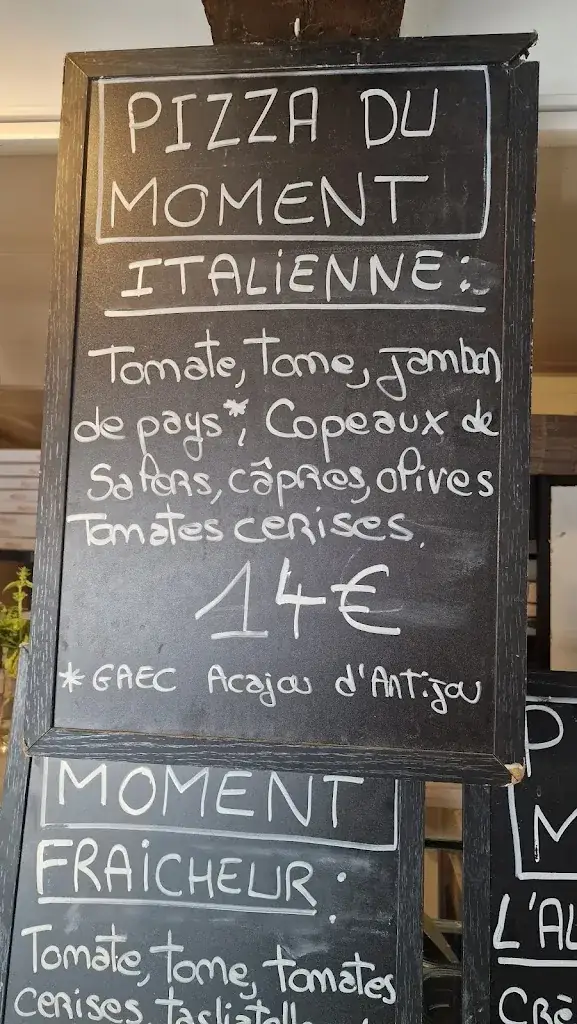 PIZZA DU
MOMENT
ITALiENNE:
Tomate, tome, jambon
de pays*, Copeaux de
Salers, câpres, olives
Tomates cerises.
14€
*GAEC Acajou d'Antijou
MOMENT
FRAiCHEUR:
Tomate, tome, tomates
cerises,
P
M
L'AL
CRÈ